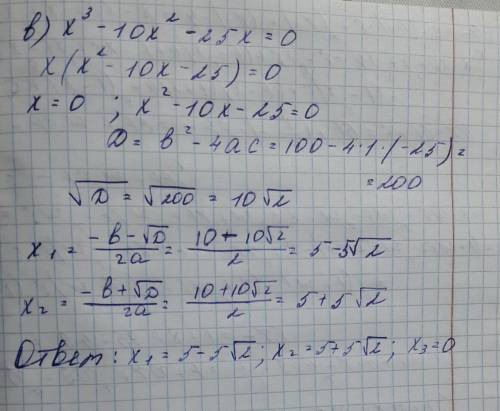 в) x³ - 10x² - 25x = 0
x(x² - 10x - 25) = 0
x = 0 ; x² - 10x - 25 = 0
D = b² - 4ac = 100 - 4·1·(-25) =
= 200
√D = √200 = 10√2
x₁ = (-b - √D)/2a = (10 - 10√2)/2 = 5 - 5√2
x₂ = (-b + √D)/2a = (10 + 10√2)/2 = 5 + 5√2
Ответ: x₁ = 5 - 5√2; x₂ = 5 + 5√2; x₃ = 0